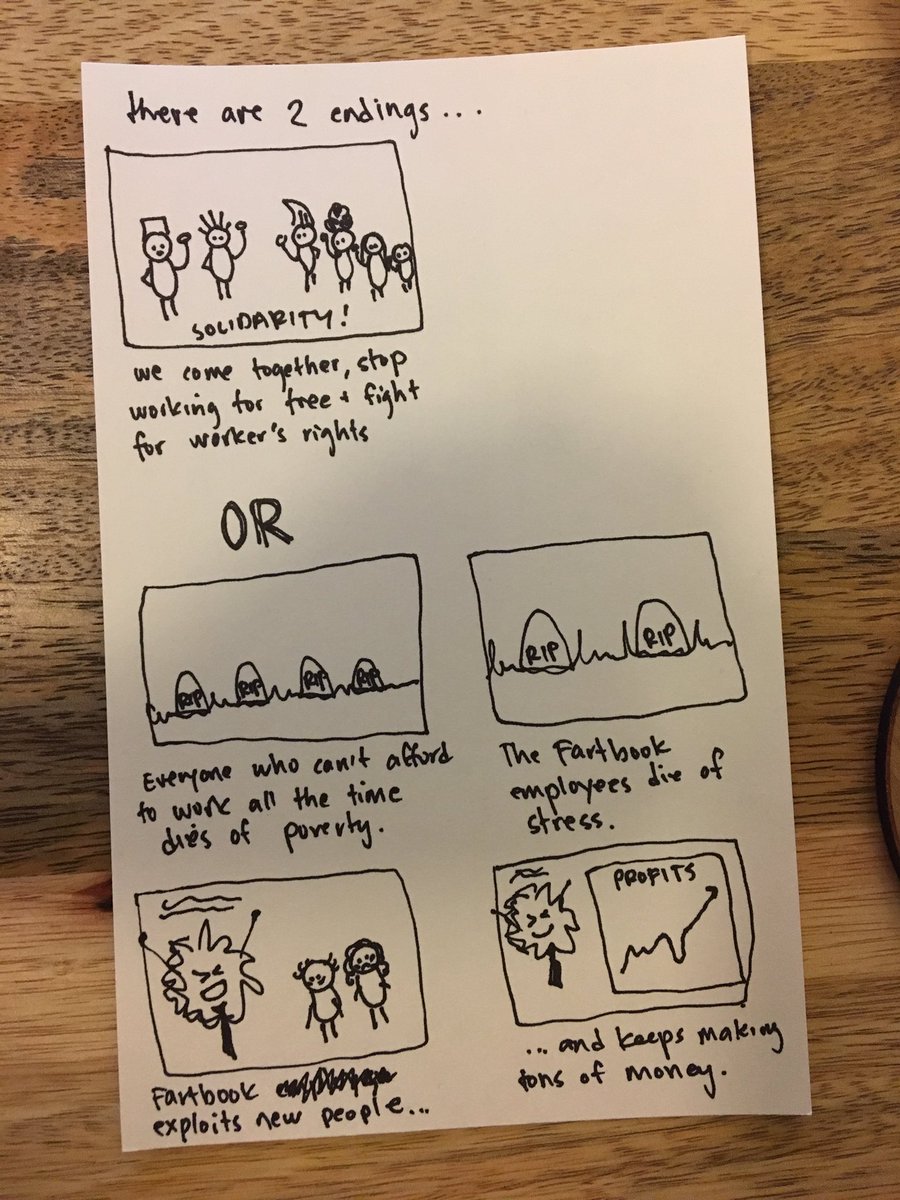 there are 2 endings...
SOLIDARITY!
we come together, stop
working for free + fight
for worker's rights
OR
RIP RIP RIP RIP
Everyone who can't afford
to work all the time
dies of poverty.
RIP RIP
The Fartbook
employees die of
stress.
Fartbook
exploits new people...
PROFITS
...and keeps making
tons of money.